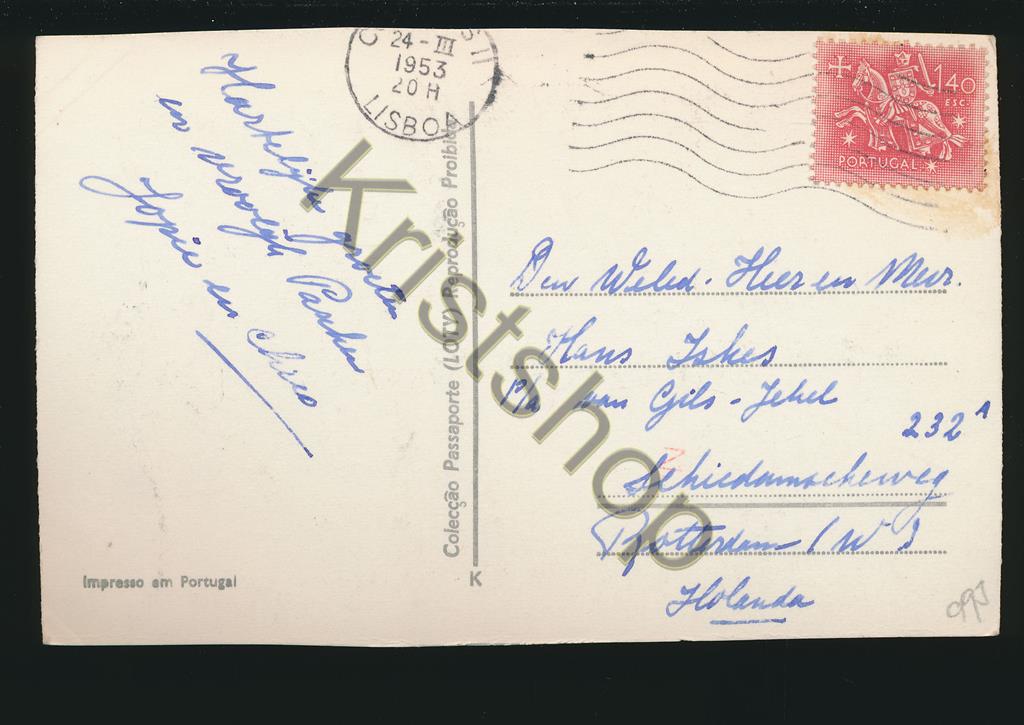 Hartelijke groeten
en vroolijk Paschen
Jopie en Chreo
24-III
1953
20 H
LISBOA
1$40
ESC.
PORTUGAL
Colecção Passaporte (LOTY) Reprodução Proibida
Den Weled. Heer en Mevr.
Hans Iskes
p/a van Gils-Jekel
232 A
Schiedamscheweg
Rotterdam (W)
Holanda
Impresso em Portugal
K
Kristshop